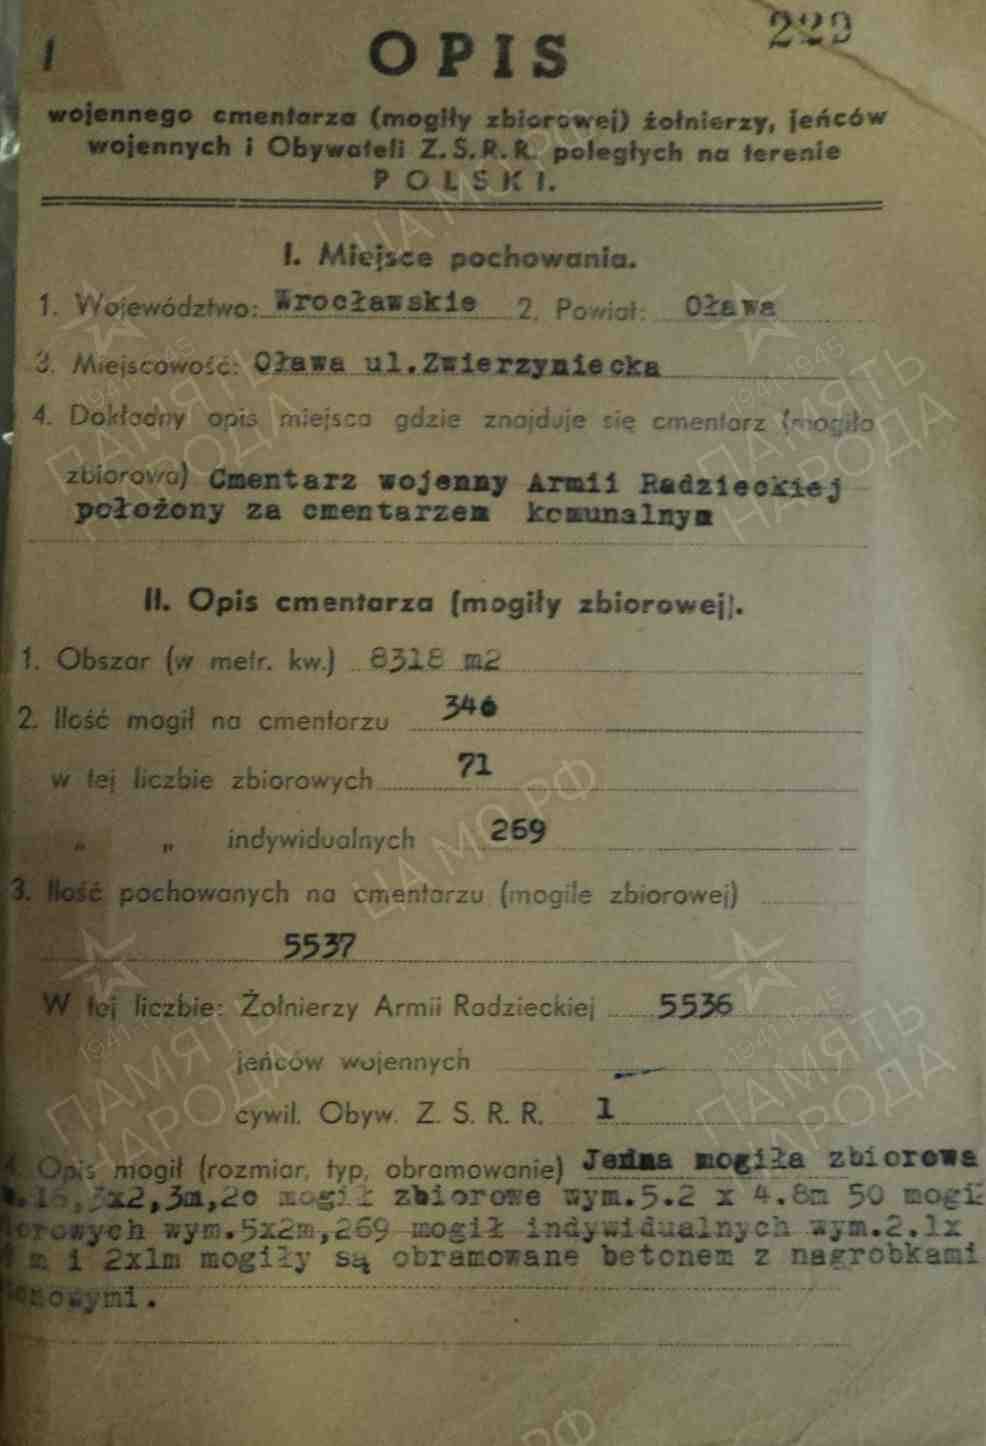 1
229
OPIS
wojennego cmentarza (mogiły zbiorowej) żołnierzy, jeńców
wojennych i Obywateli Z.S.R.R. poległych na terenie
POLSKI.
I. Miejsce pochowania.
1. Województwo: Wrocławskie 2. Powiat: Oława
3. Miejscowość: Oława ul.Zwierzyniecka
4. Dokładny opis miejsca gdzie znajduje się cmentarz (mogiła
zbiorowa) Cmentarz wojenny Armii Radzieckiej
położony za cmentarzem komunalnym
II. Opis cmentarza (mogiły zbiorowej).
1. Obszar (w metr. kw.) 8318 m2
2. Ilość mogił na cmentarzu 340
w tej liczbie zbiorowych 71
" " indywidualnych 269
3. Ilość pochowanych na cmentarzu (mogile zbiorowej)
5537
W tej liczbie: Żołnierzy Armii Radzieckiej 5536
jeńców wojennych —
cywil. Obyw. Z. S. R. R. 1
4. Opis mogił (rozmiar, typ, obramowanie) Jedna mogiła zbiorowa
x2,3m,20 mogił zbiorowe wym.5.2 x 4.8m 50 mogił
wym.5x2m,269 mogił indywidualnych wym.2.1x
m i 2x1m mogiły są obramowane betonem z nagrobkami
ЦА МО РФ
1941-1945
ПАМЯТЬ
НАРОДА
1941-1945
ПАМЯТЬ
НАРОДА
ЦА МО РФ
1941-1945
ПАМЯТЬ
НАРОДА
1941-1945
ПАМЯТЬ
НАРОДА
РФ